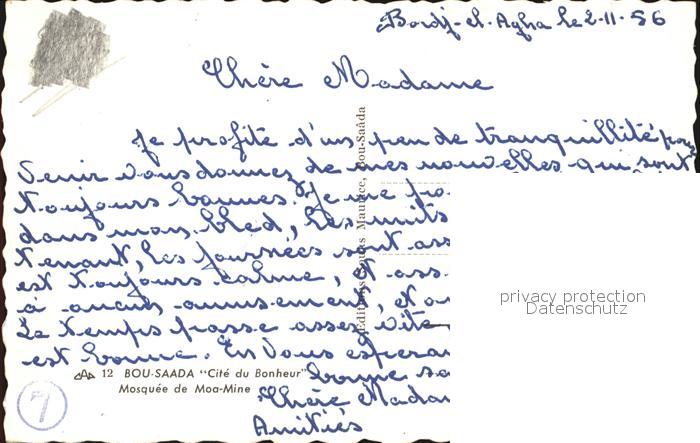 Bordj-el-Agha le 2-11-56
Chère Madame
Je profite d'un peu de tranquillité pour
venir vous donnez de mes nouvelles qui sont
toujours bonnes. Je me
dans mon bled, les nuits
tenant, les journées sont
est toujours calme, et
à aucun amusement, et
Le temps passe assez vite
est bonne. En vous
bonne
Chère
Amitiés
12 BOU-SAADA "Cité du Bonheur"
Mosquée de Moa-Mine
Maurice, Bou-Saâda
privacy protection
Datenschutz
7